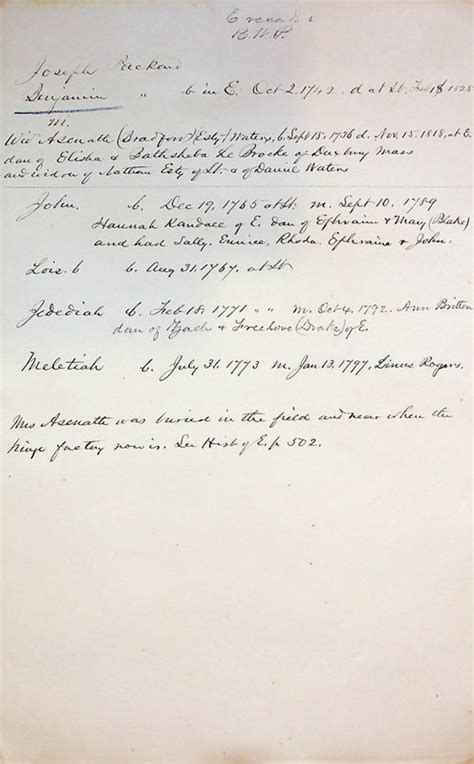 E records
B.W.P.
Joseph Packard
Benjamin " b in E. Oct 2, 1742. d at St. Feb 18 1825
m.
Wid Asenath (Bradford) (Esty) Waters, b. Sept 15, 1736 d. Nov, 15, 1818, at E.
dau of Elisha & Bathsheba Le Brocke of Duxbury Mass
and widow of Nathan Esty of St. & of Daniel Waters
John. b. Dec 19, 1765 at St m. Sept 10, 1789
Hannah Randall of E. dau of Ephraim & Mary (Blake)
and had Sally. Eunice, Rhoda. Ephraim & John.
Lois. b b. Aug 31. 1767. at St
Jedediah b. Feb 18, 1771 " " m. Oct 4, 1792. Ann Britton
dau of Zach & Freelove (Drake) of E.
Meletiah b. July 31, 1773 m. Jan 13, 1797, Linus Rogers.
Mrs Asenath was buried in the field and near when the
hinge factory now is. See Hist of E. p 502.